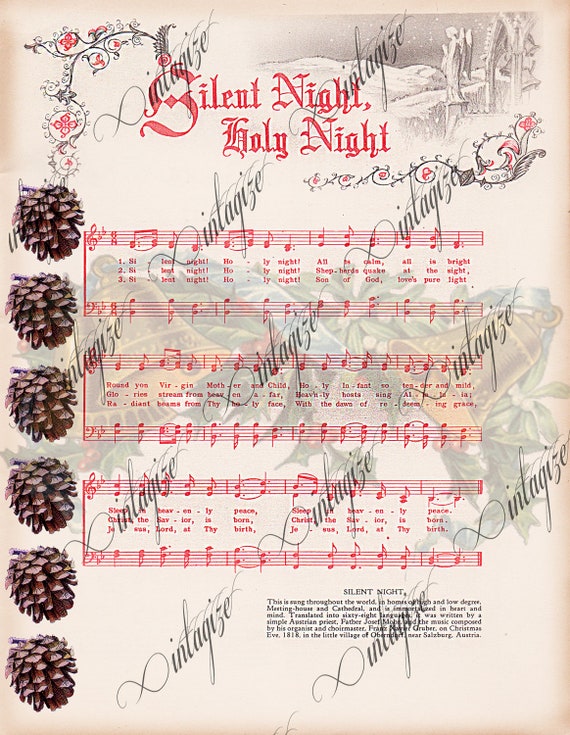 Silent Night,
Holy Night
1. Si - lent night! Ho - ly night! All is calm, all is bright
2. Si - lent night! Ho - ly night! Shep-herds quake at the sight,
3. Si - lent night! Ho - ly night! Son of God, love's pure light
Round yon Vir - gin Moth - er and Child, Ho - ly In - fant so ten - der and mild,
Glo - ries stream from heav - en a - far, Heav'n - ly hosts sing Al - le - lu - ia;
Ra - diant beams from Thy ho - ly face, With the dawn of re - deem - ing grace,
Sleep in heav - en - ly peace, Sleep in heav - en - ly peace.
Christ, the Sav - ior, is born, Christ, the Sav - ior, is born.
Je - sus, Lord, at Thy birth, Je - sus, Lord, at Thy birth.
SILENT NIGHT.
This is sung throughout the world, in homes of high and low degree,
Meeting-house and Cathedral, and is in heart and
mind. Translated into sixty-eight languages, it was written by a
simple Austrian priest, Father Josef Mohr, and the music composed
by his organist and choirmaster, Franz Xavier Gruber, on Christmas
Eve, 1818, in the little village of Oberndorf, near Salzburg, Austria.
Vintagize
Vintagize
Vintagize
Vintagize
Vintagize
Vintagize
Vintagize
Vintagize
Vintagize
Vintagize
Vintagize
Vintagize
Vintagize
Vintagize